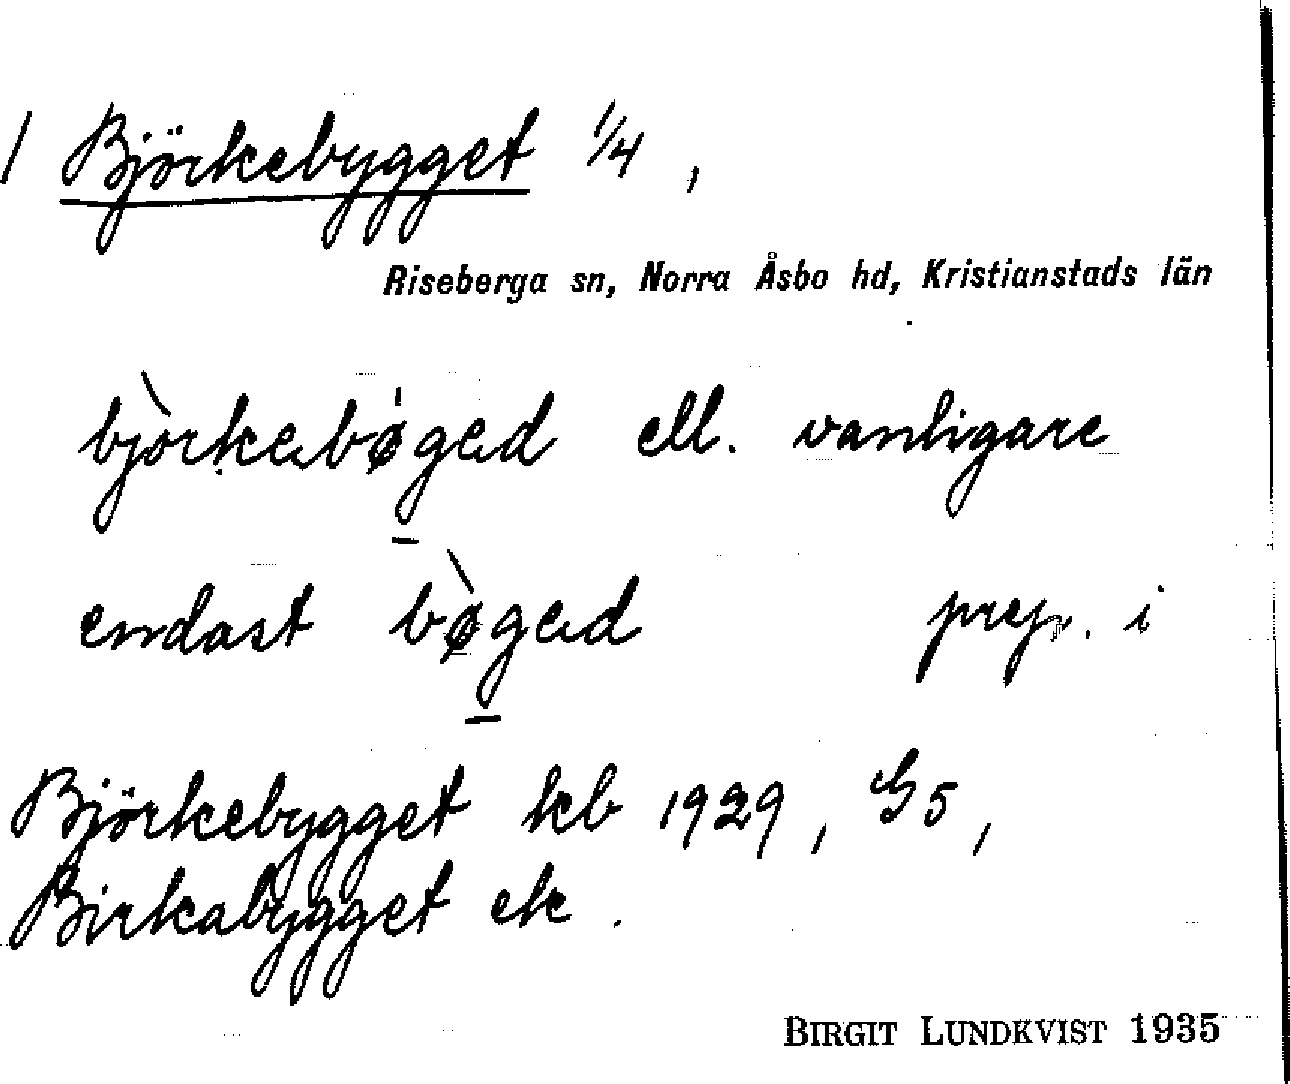 1 Björkebygget 1/4 ,
Riseberga sn, Norra Åsbo hd, Kristianstads län
bjòrkabø̍gad ell. vanligare
endast bø̀gad prep. i
Björkebygget kb 1929, G5,
Birkabygget ek.
BIRGIT LUNDKVIST 1935